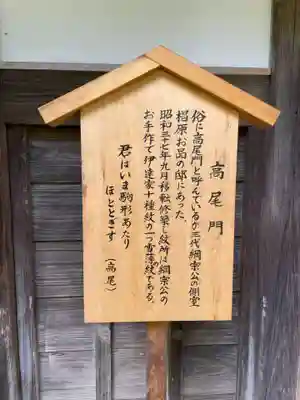 高尾門
俗に高尾門と呼んでいるが三代綱宗公の側室
椙原お品の邸にあった。
昭和三十七年九月移転修築し紋所は綱宗公の
お手作で伊達家十種紋の一つ雪薄紋である。
君はいま駒形あたり
ほととぎす
(高尾)